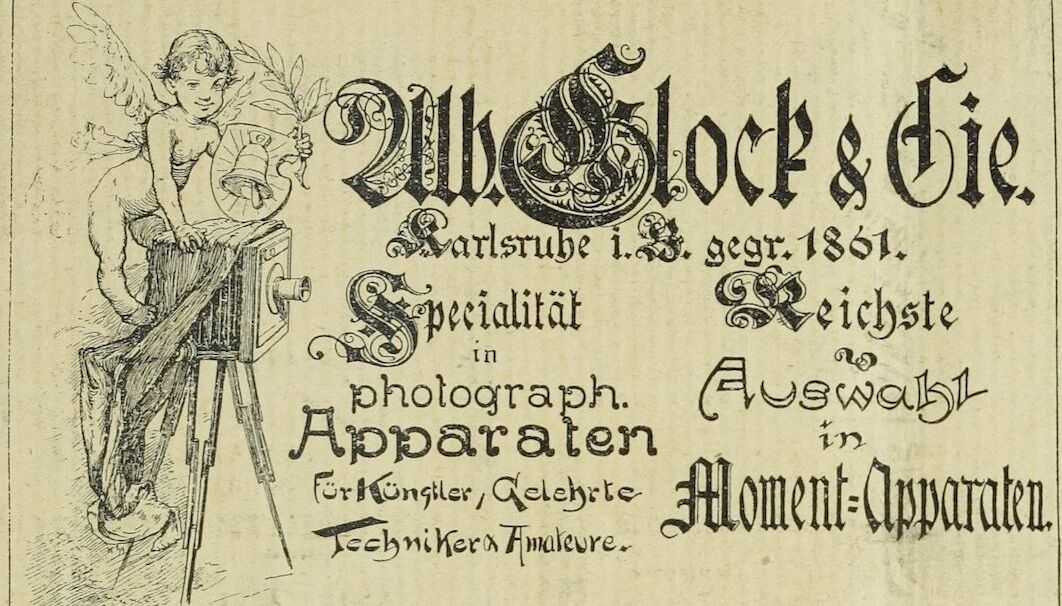 Alb. Glock & Cie.
Karlsruhe i. B. gegr. 1861.
Specialität
in
photograph.
Apparaten
für Künstler, Gelehrte
Techniker & Amateure.
Reichste
Auswahl
in
Moment-Apparaten.